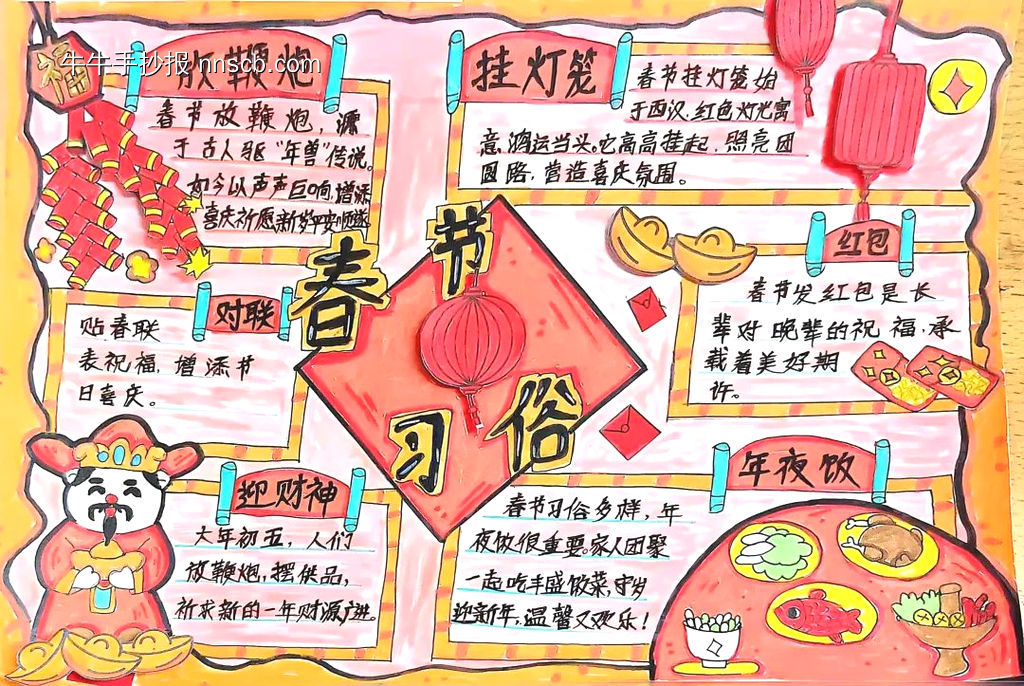 牛牛手抄报 nnscb.com
放鞭炮
春节放鞭炮，源
于古人驱“年兽”传说。
如今以声声巨响，增添
喜庆祈愿新岁平安顺遂
挂灯笼
春节挂灯笼始
于西汉，红色灯光寓
意鸿运当头。它高高挂起，照亮团
圆路，营造喜庆氛围。
春节
习俗
对联
贴春联
表祝福，增添节
日喜庆。
红包
春节发红包是长
辈对晚辈的祝福，承
载着美好期
许。
迎财神
大年初五，人们
放鞭炮，摆供品，
祈求新的一年财源广进。
年夜饭
春节习俗多样，年
夜饭很重要。家人团聚
一起吃丰盛饭菜，守岁
迎新年，温馨又欢乐！
福